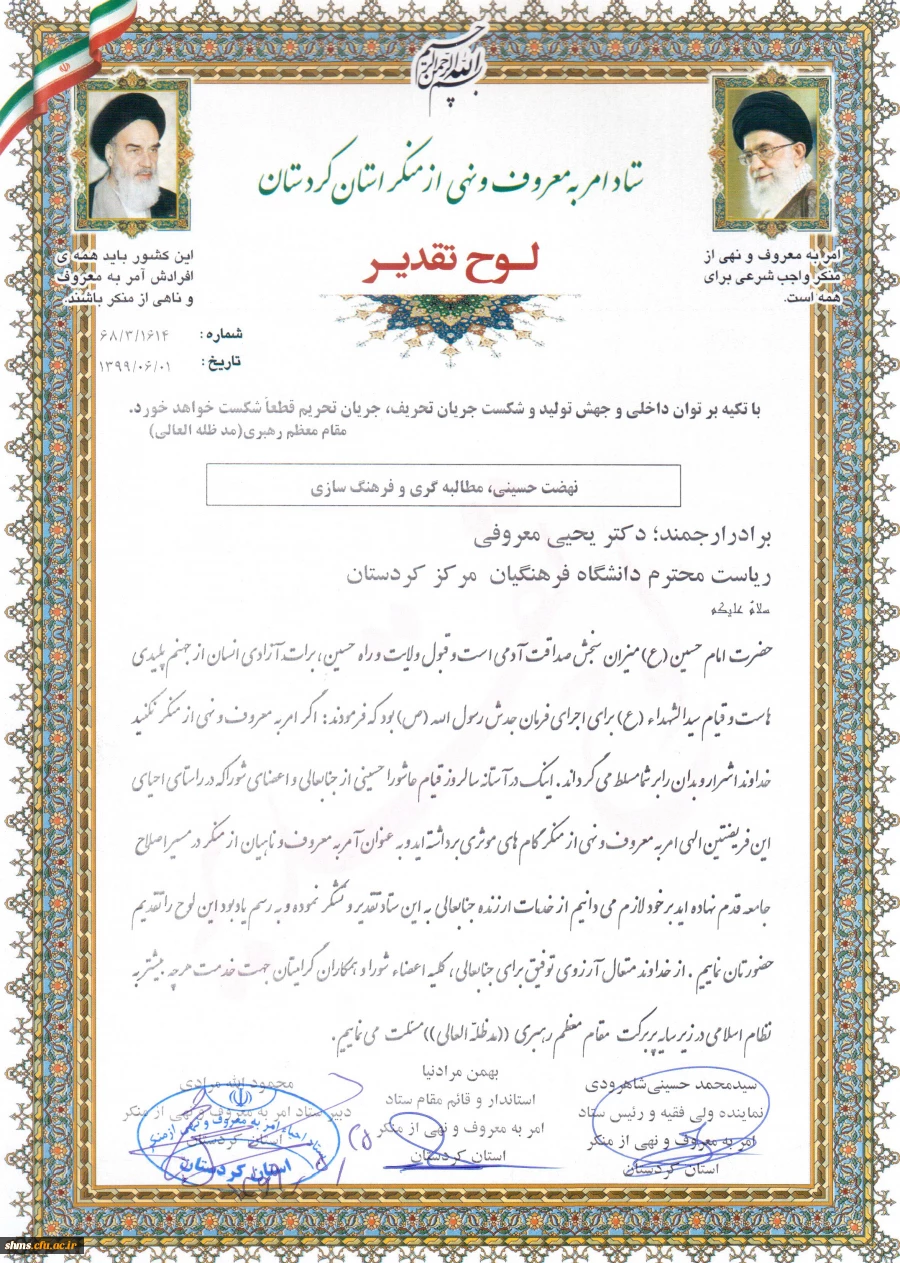 بسم الله الرحمن الرحیم
ستاد امر به معروف و نهی از منکر استان کردستان
لوح تقدیر
امر به معروف و نهی از
منکر واجب شرعی برای
همه است.
این کشور باید همه ی
افرادش آمر به معروف
و ناهی از منکر باشند.
شماره : ۶۸/۳/۱۶۱۴
تاریخ : ۱۳۹۹/۰۶/۰۱
با تکیه بر توان داخلی و جهش تولید و شکست جریان تحریف، جریان تحریم قطعاً شکست خواهد خورد.
مقام معظم رهبری(مد ظله العالی)
نهضت حسینی، مطالبه گری و فرهنگ سازی
برادر ارجمند؛ دکتر یحیی معروفی
ریاست محترم دانشگاه فرهنگیان مرکز کردستان
سلامٌ علیکم
حضرت امام حسین (ع) میزان سنجش صداقت آدمی است و قبول ولایت و راه حسین، برات آزادی انسان از جهنم پلیدی
هاست و قیام سیدالشهداء (ع) برای اجرای فرمان جدش رسول الله (ص) بود که فرمودند: اگر امر به معروف و نهی از منکر نکنید
خداوند اشرار و بدان را بر شما مسلط می گرداند. اینک در آستانه سالروز قیام عاشورا حسینی از جنابعالی و اعضای شورا که در راستای احیای
این فریضتین الهی امر به معروف و نهی از منکر گام های موثری برداشته اید و به عنوان آمر به معروف و ناهیان از منکر در مسیر اصلاح
جامعه قدم نهاده اید بر خود لازم می دانیم از خدمات ارزنده جنابعالی به این ستاد تقدیر و تشکر نموده و به رسم یادبود این لوح را تقدیم
حضورتان نماییم . از خداوند متعال آرزوی توفیق برای جنابعالی، کلیه اعضاء شورا و همکاران گرامیتان جهت خدمت هر چه بیشتر به
نظام اسلامی در زیر سایه پر برکت مقام معظم رهبری ((مدظله العالی)) مسئلت می نماییم.
سیدمحمد حسینی شاهرودی
نماینده ولی فقیه و رئیس ستاد
امر به معروف و نهی از منکر
استان کردستان
بهمن مرادنیا
استاندار و قائم مقام ستاد
امر به معروف و نهی از منکر
استان کردستان
محمود الله مرادی
دبیر ستاد امر به معروف و نهی از منکر
استان کردستان
ستاد احیاء امر به معروف و نهی از منکر
استان کردستان
shms.cfu.ac.ir